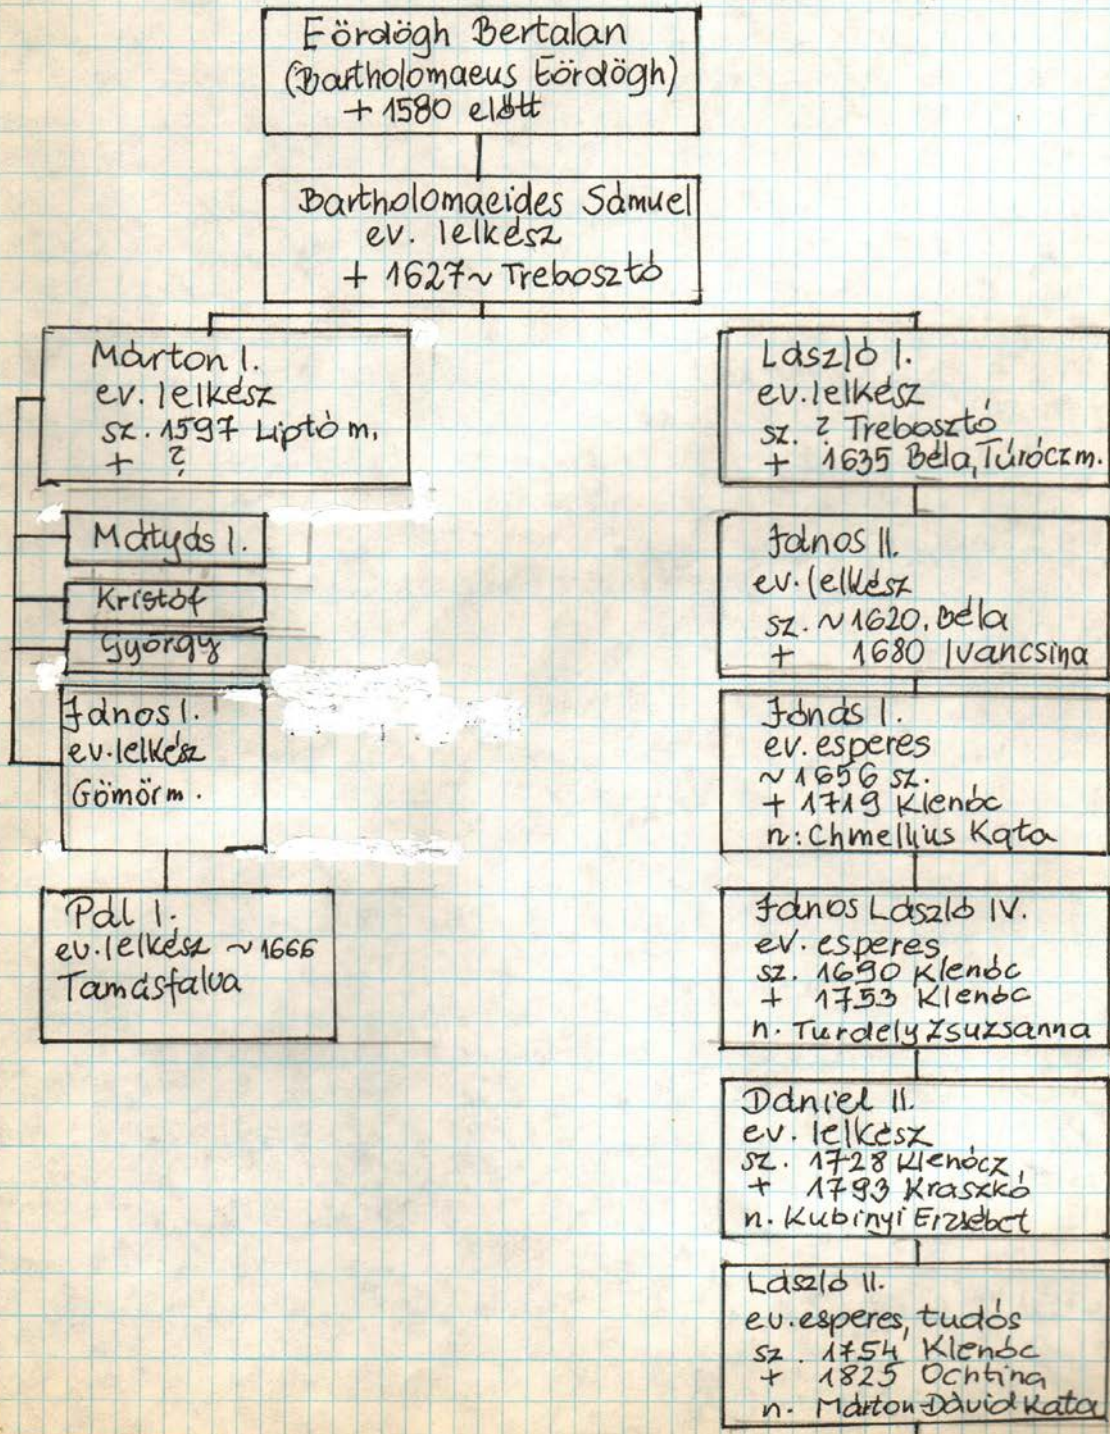 Eördögh Bertalan
(Bartholomaeus Eördögh)
+ 1580 előtt
Bartholomaeides Sámuel
ev. lelkész
+ 1627~ Trebosztó
Márton I.
ev. lelkész
sz. 1597 Liptó m.
+ ?
Mátyás I.
Kristóf
György
János I.
ev. lelkész
Gömör m.
Pál I.
ev. lelkész ~ 1666
Tamásfalva
László I.
ev. lelkész
sz. ? Trebosztó
+ 1635 Béla, Túrócz m.
János II.
ev. lelkész
sz. ~1620. Béla
+ 1680 Ivancsina
Jónás I.
ev. esperes
~ 1656 sz.
+ 1719 Klenóc
n: Chmellius Kata
János László IV.
ev. esperes
sz. 1690 Klenóc
+ 1753 Klenóc
n. Turdely Zsuzsanna
Dániel II.
ev. lelkész
sz. 1728 Klenócz
+ 1793 Kraszkó
n. Kubinyi Erzsébet
László II.
ev. esperes, tudós
sz. 1754 Klenóc
+ 1825 Ochtina
n. Márton-Dávid Kata